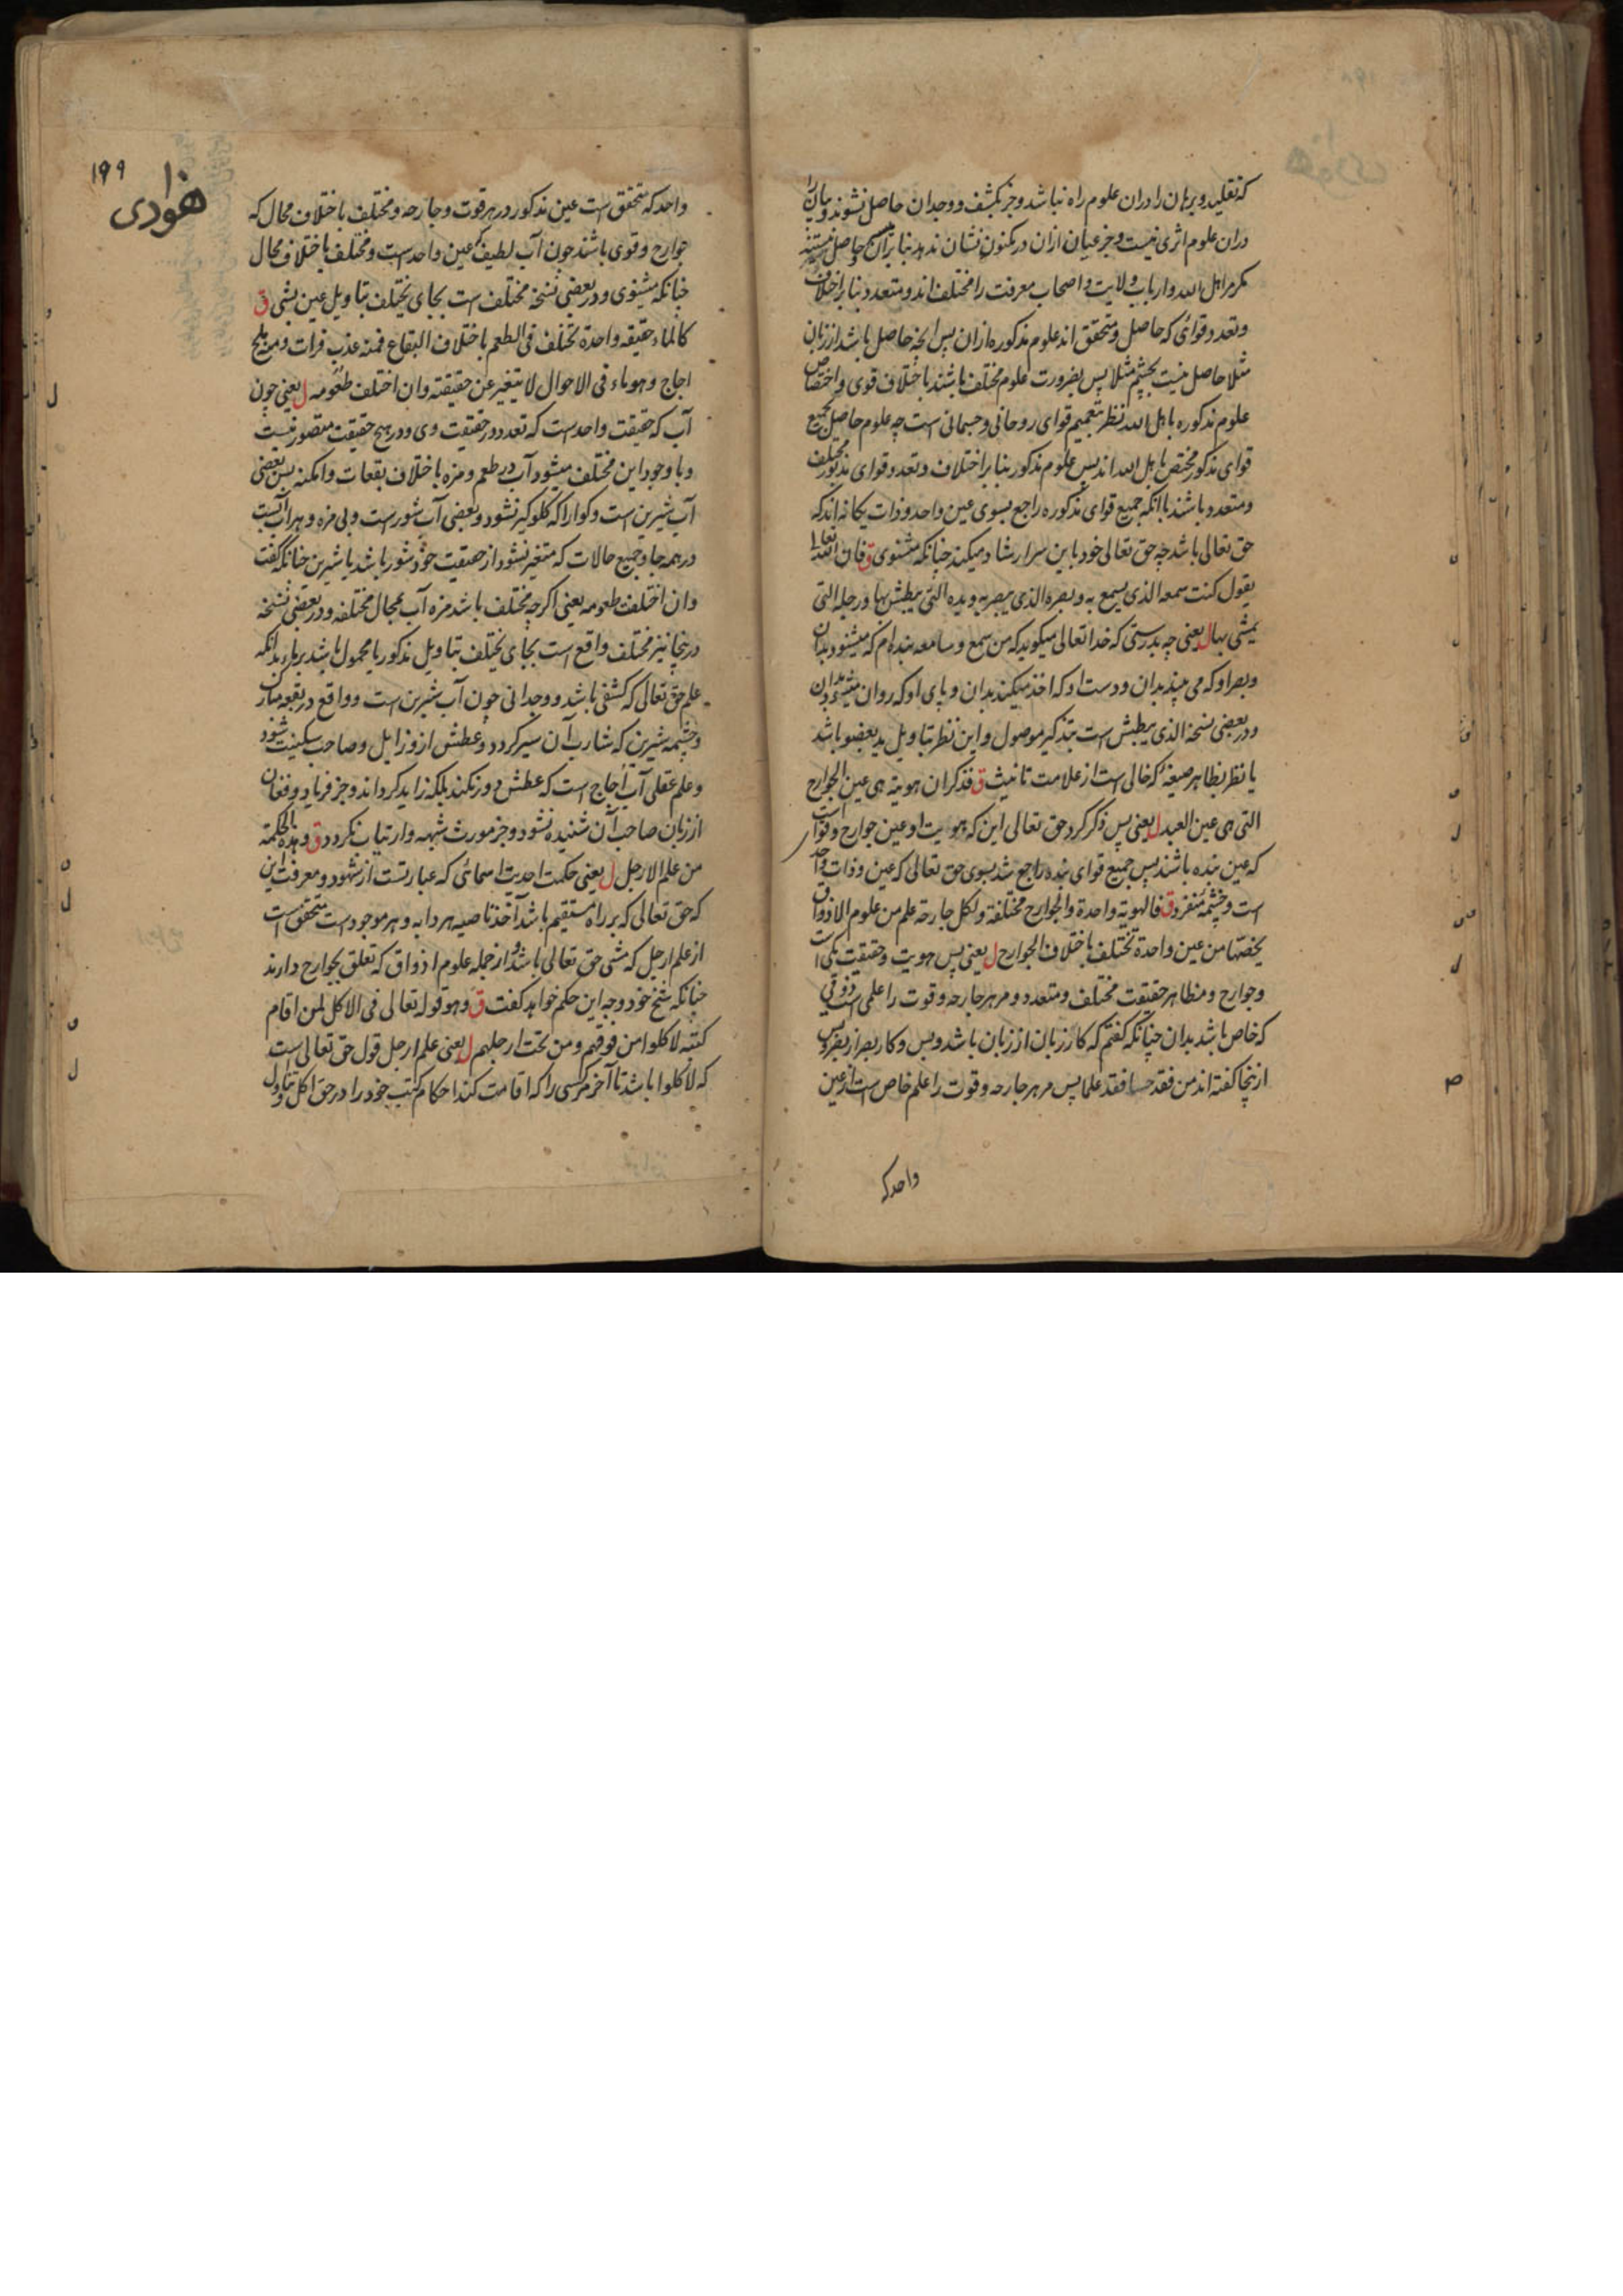 که تقلید و برهان را دران علوم راه نباشد و جز بکشف و وجدان حاصل نشوند و بیان را
دران علوم اثری نیست و جز عیان ازان در مکنون نشان ندهد بنابران هیچ حاصل نیستند
مگر مر اهل الله و ارباب ولایت و اصحاب معرفت را مختلف اند و متعدد بنابر اختلاف
و تعدد قوائی که حاصل و متحقق اند علوم مذکوره ازان پس آنچه حاصل باشد از زبان
مثلا حاصل نیست بچشم مثلا پس بضرورت علوم مختلف باشند باختلاف قوی و اختصاص
علوم مذکوره باهل الله نظر بتعمیم قوای روحانی و جسمانی است چه علوم حاصل بجمیع
قوای مذکور مختص باهل الله اند پس علوم مذکور بنابر اختلاف و تعدد قوای مذکور مختلف
و متعدد باشند باآنکه جمیع قوای مذکوره راجع بسوی عین واحد و ذات یکانه اند که
حق تعالی باشد چه حق تعالی خود باین سر ارشاد میکند چنانکه میشنوی ق فان الله تعالی
یقول کنت سمعه الذی یسمع به و بصره الذی یبصر به و یده التی یبطش بها و رجله التی
یمشی بها ل یعنی چه بدرستی که خدا تعالی میکوید که من سمع و سامعه بنده ام که میشنود بدان
و بصر او که می بیند بدان و دست او که اخذ میکند بدان و پای او که روان میشود بدان
و در بعضی نسخه الذی یبطش است بتذکیر موصول و این نظر بتاویل ید بعضو باشد
یا نظر بظاهر صیغه که خالی است از علامت تانیث ق فذکر ان هویته هی عین الجوارح
التی هی عین العبد ل یعنی پس ذکر کرد حق تعالی این که هویت او عین جوارح و قوا است
که عین بنده باشند پس جمیع قوای بنده راجع شد بسوی حق تعالی که عین و ذات واحد
است و چشمه منفرد ق فالهویة واحدة والجوارح مختلفة ولکل جارحة علم من علوم الاذواق
یخصها من عین واحدة تختلف باختلاف الجوارح ل یعنی پس هویت و حقیقت یکی است
و جوارح و مظاهر حقیقت مختلف و متعدد و مر هر جارحه و قوت را علمی است ذوقی
که خاص باشد بدان چنانکه کفتم که کار زبان از زبان باشد و بس و کار بصر از بصر و بس
ازینجا کفته اند من فقد حسا فقد علما پس مر هر جارحه و قوت را علم خاص است از عین
واحد که
۱۹۹
هودی
واحد که متحقق است عین مذکور در هر قوت و جارحه و مختلف باختلاف محال که
جوارح و قوی باشند چون آب لطیف که عین واحد است و مختلف باختلاف محال
چنانکه میشنوی و در بعضی نسخه مختلف است بجای یختلف بتاویل عین بشی ق
کالماء حقیقه واحدة تختلف فی الطعم باختلاف البقاع فمنه عذب فرات و منه ملح
اجاج و هو ماء فی الاحوال لا یتغیر عن حقیقته وان اختلف طعومه ل یعنی چون
آب که حقیقت واحد است که تعدد در حقیقت وی و در هیچ حقیقت متصور نیست
و با وجود این مختلف میشود آب در طعم و مزه باختلاف بقعات و امکنه پس بعضی
آب شیرین است و کوارا که کلو کیر نشود و بعضی آب شور است و بی مزه و هر آب آبست
در همه جا و جمیع حالات که متغیر نشود از حقیقت خود شور باشد یا شیرین چنانکه گفت
وان اختلفت طعومه یعنی اکرچه مختلف باشد مزه آب بمحال مختلفه و در بعضی نسخه
درینجا نیز مختلف واقع است بجای یختلف بتاویل مذکور یا محمول باشد بر ماء بدانکه
علم حق تعالی که کشفی باشد و وجدانی چون آب شیرین است و واقع در بقعه مبارک
و چشمه شیرین که شارب آن سیر کردد و عطش ازو زایل و صاحب سکینت شود
و علم عقلی آب اجاج است که عطش دور نکند بلکه زاید کرداند و جز فریاد و فغان
از زبان صاحب آن شنیده نشود و جز مورث شبهه و ارتیاب نکردد ق و هذه الحکمة
من علم الارجل ل یعنی حکمت احدیت اسمائی که عبارتست از شهود و معرفت این
که حق تعالی که بر راه مستقیم باشد آخذ ناصیه هر دابه و هر موجود است متحقق است
از علم ارجل که مشی حق تعالی باشد و از جمله علوم اذواق که تعلق بجوارح دارند
چنانکه شیخ خود وجه این حکم خواهد کفت ق و هو قوله تعالی فی الاکل لمن اقام
کتبه لاکلوا من فوقهم و من تحت ارجلهم ل یعنی علم ارجل قول حق تعالی است
که لاکلوا باشد تا آخر مر کسی را که اقامت کند احکام کتب خود را در حق اکل و تناول